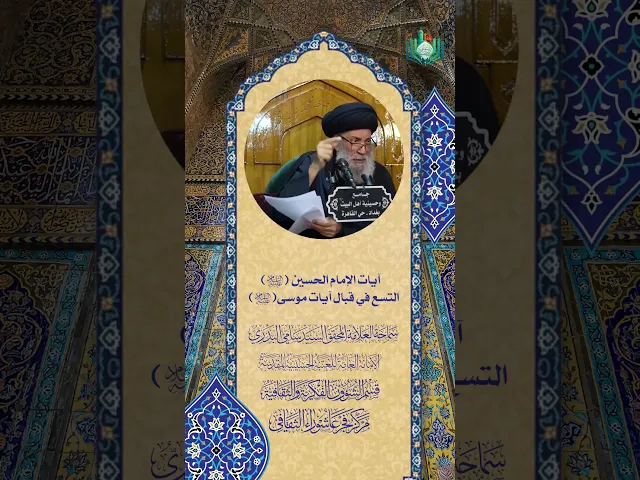 جامع
وحسينية أهل البيت
بغداد - حي القاهرة
آيات الإمام الحسين (عليه السلام)
التسع في قبال آيات موسى (عليه السلام)
سماحة العلامة المحقق السيد سامي البدري
الأمانة العامة للعتبة الحسينية المقدسة
قسم الشؤون الفكرية والثقافية
مركز فجر عاشوراء الثقافي